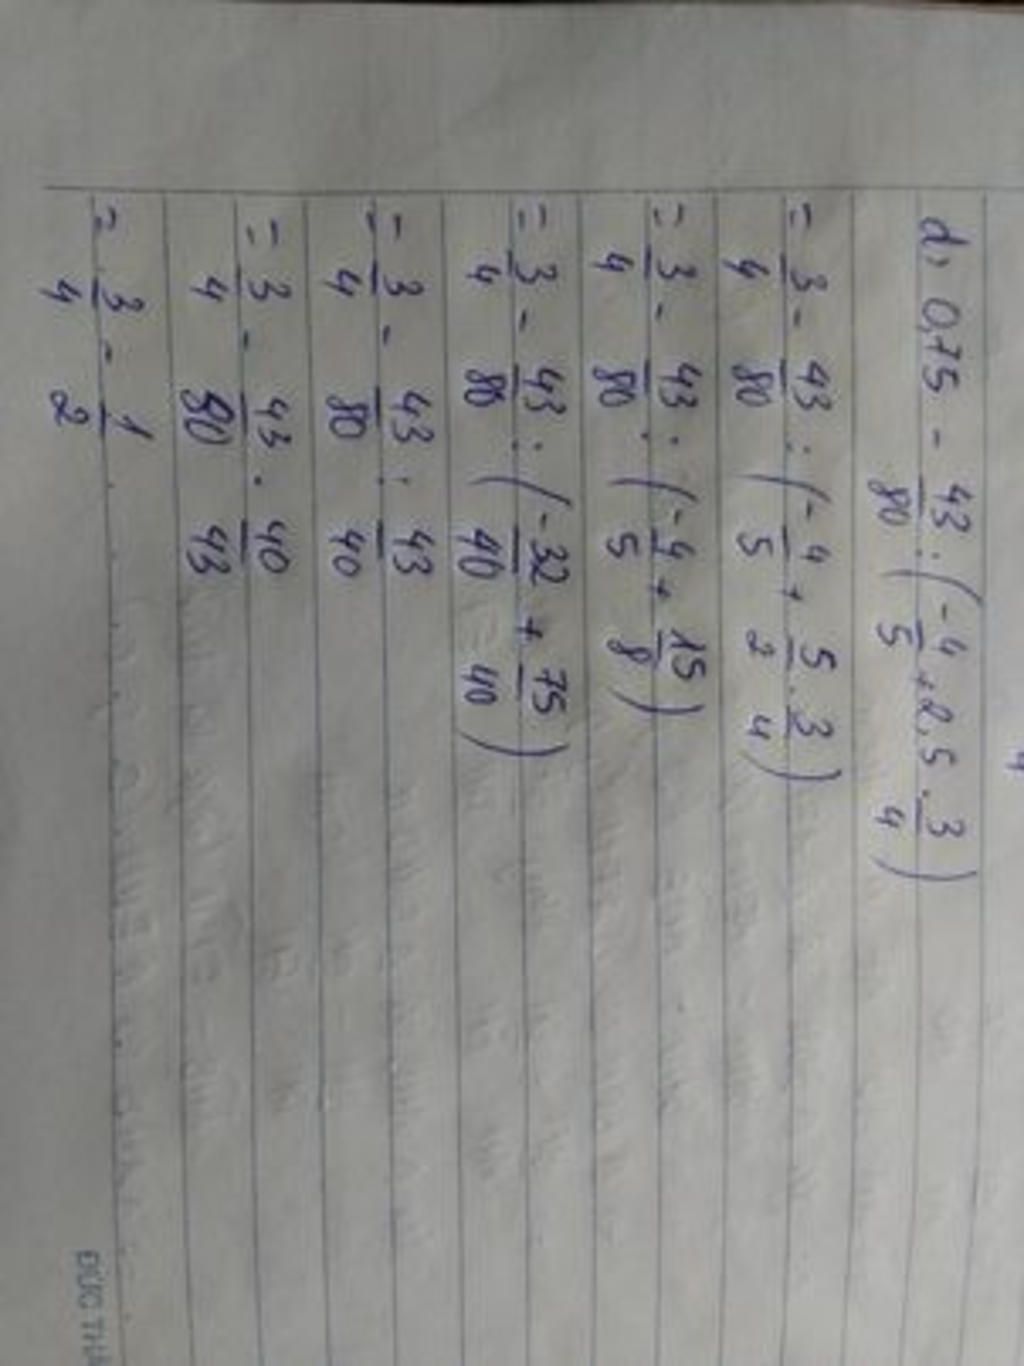 d, 0,75 - 43/80 : (-4/5 + 2,5 . 3/4)
= 3/4 - 43/80 : (-4/5 + 5/2 . 3/4)
= 3/4 - 43/80 : (-4/5 + 15/8)
= 3/4 - 43/80 : (-32/40 + 75/40)
= 3/4 - 43/80 : 43/40
= 3/4 - 43/80 . 40/43
= 3/4 - 1/2